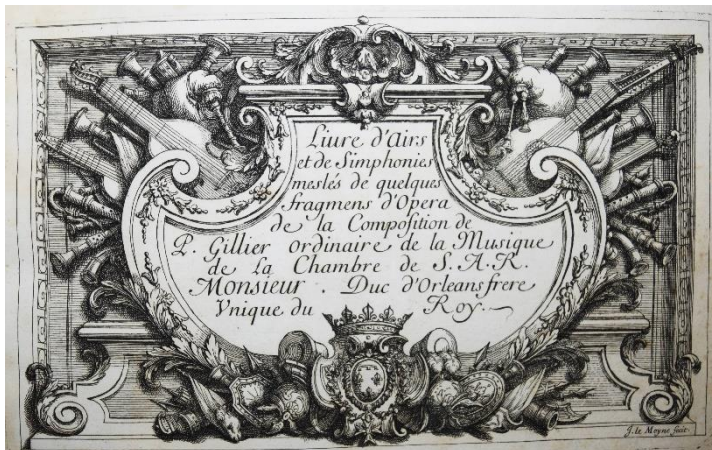 Liure d'Airs
et de Simphonies
meslés de quelques
fragmens d'Opera
de la Composition de
P. Gillier ordinaire de la Musique
de la Chambre de S. A. R.
Monsieur. Duc d'Orleans frere
Vnique du Roy.
J. le Moyne fecit